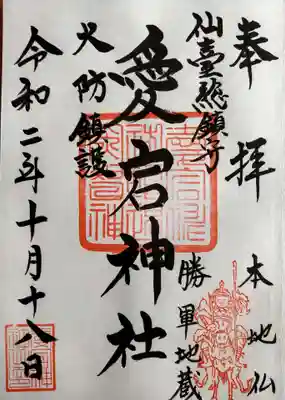 奉拝
本地仏
勝軍地蔵
仙臺総鎮守
愛宕神社
火防鎮護
令和二年十月十八日